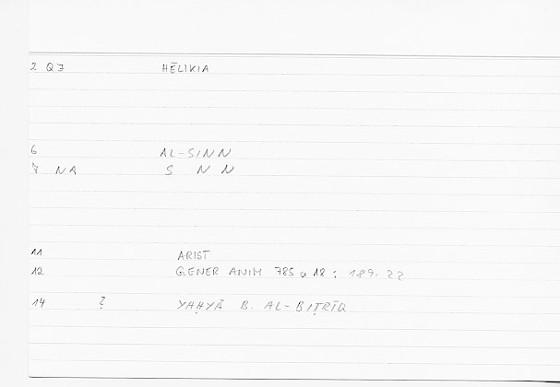 2 QJ HĒLIKIA
6 AL-SINN
7 NA S N N
11 ARIST
12 GENER ANIM 785 a 18 : 189.22
14 ? YAḤYĀ B. AL-BIṬRĪQ